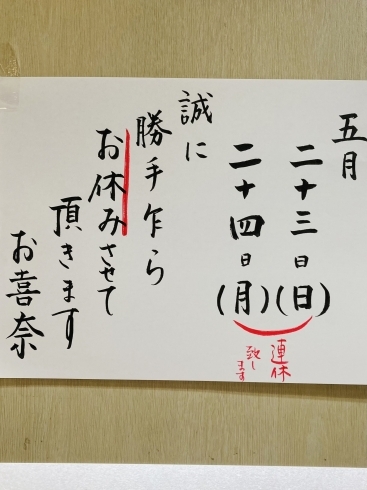 五月
二十三日(日)
二十四日(月)
連休
致します
誠に
勝手乍ら
お休みさせて
頂きます
お喜奈